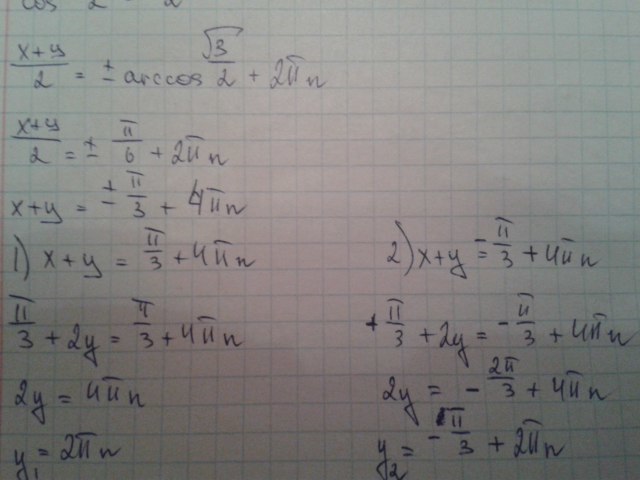 cos 2 2
(x+y)/2 = ± arccos √3/2 + 2πn
(x+y)/2 = ± π/6 + 2πn
x+y = ± π/3 + 4πn
1) x+y = π/3 + 4πn
π/3 + 2y = π/3 + 4πn
2y = 4πn
y₁ = 2πn
2) x+y = -π/3 + 4πn
+ π/3 + 2y = - π/3 + 4πn
2y = - 2π/3 + 4πn
y₂ = - π/3 + 2πn